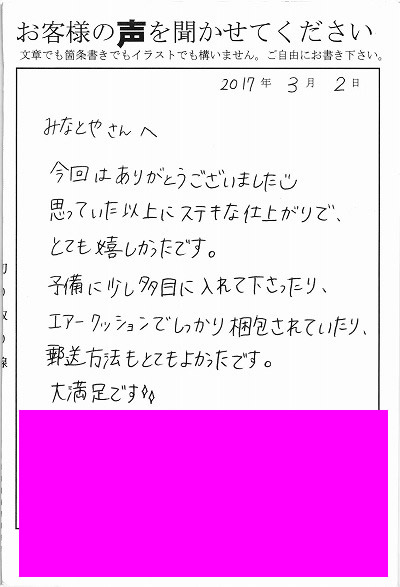 お客様の声を聞かせてください
文章でも箇条書きでもイラストでも構いません。ご自由にお書き下さい。
2017年 3月 2日
みなとやさんへ
今回はありがとうございました
思っていた以上にステキな仕上がりで、
とても嬉しかったです。
予備に少し多目に入れて下さったり、
エアークッションでしっかり梱包されていたり、
郵送方法もとてもよかったです。
大満足です